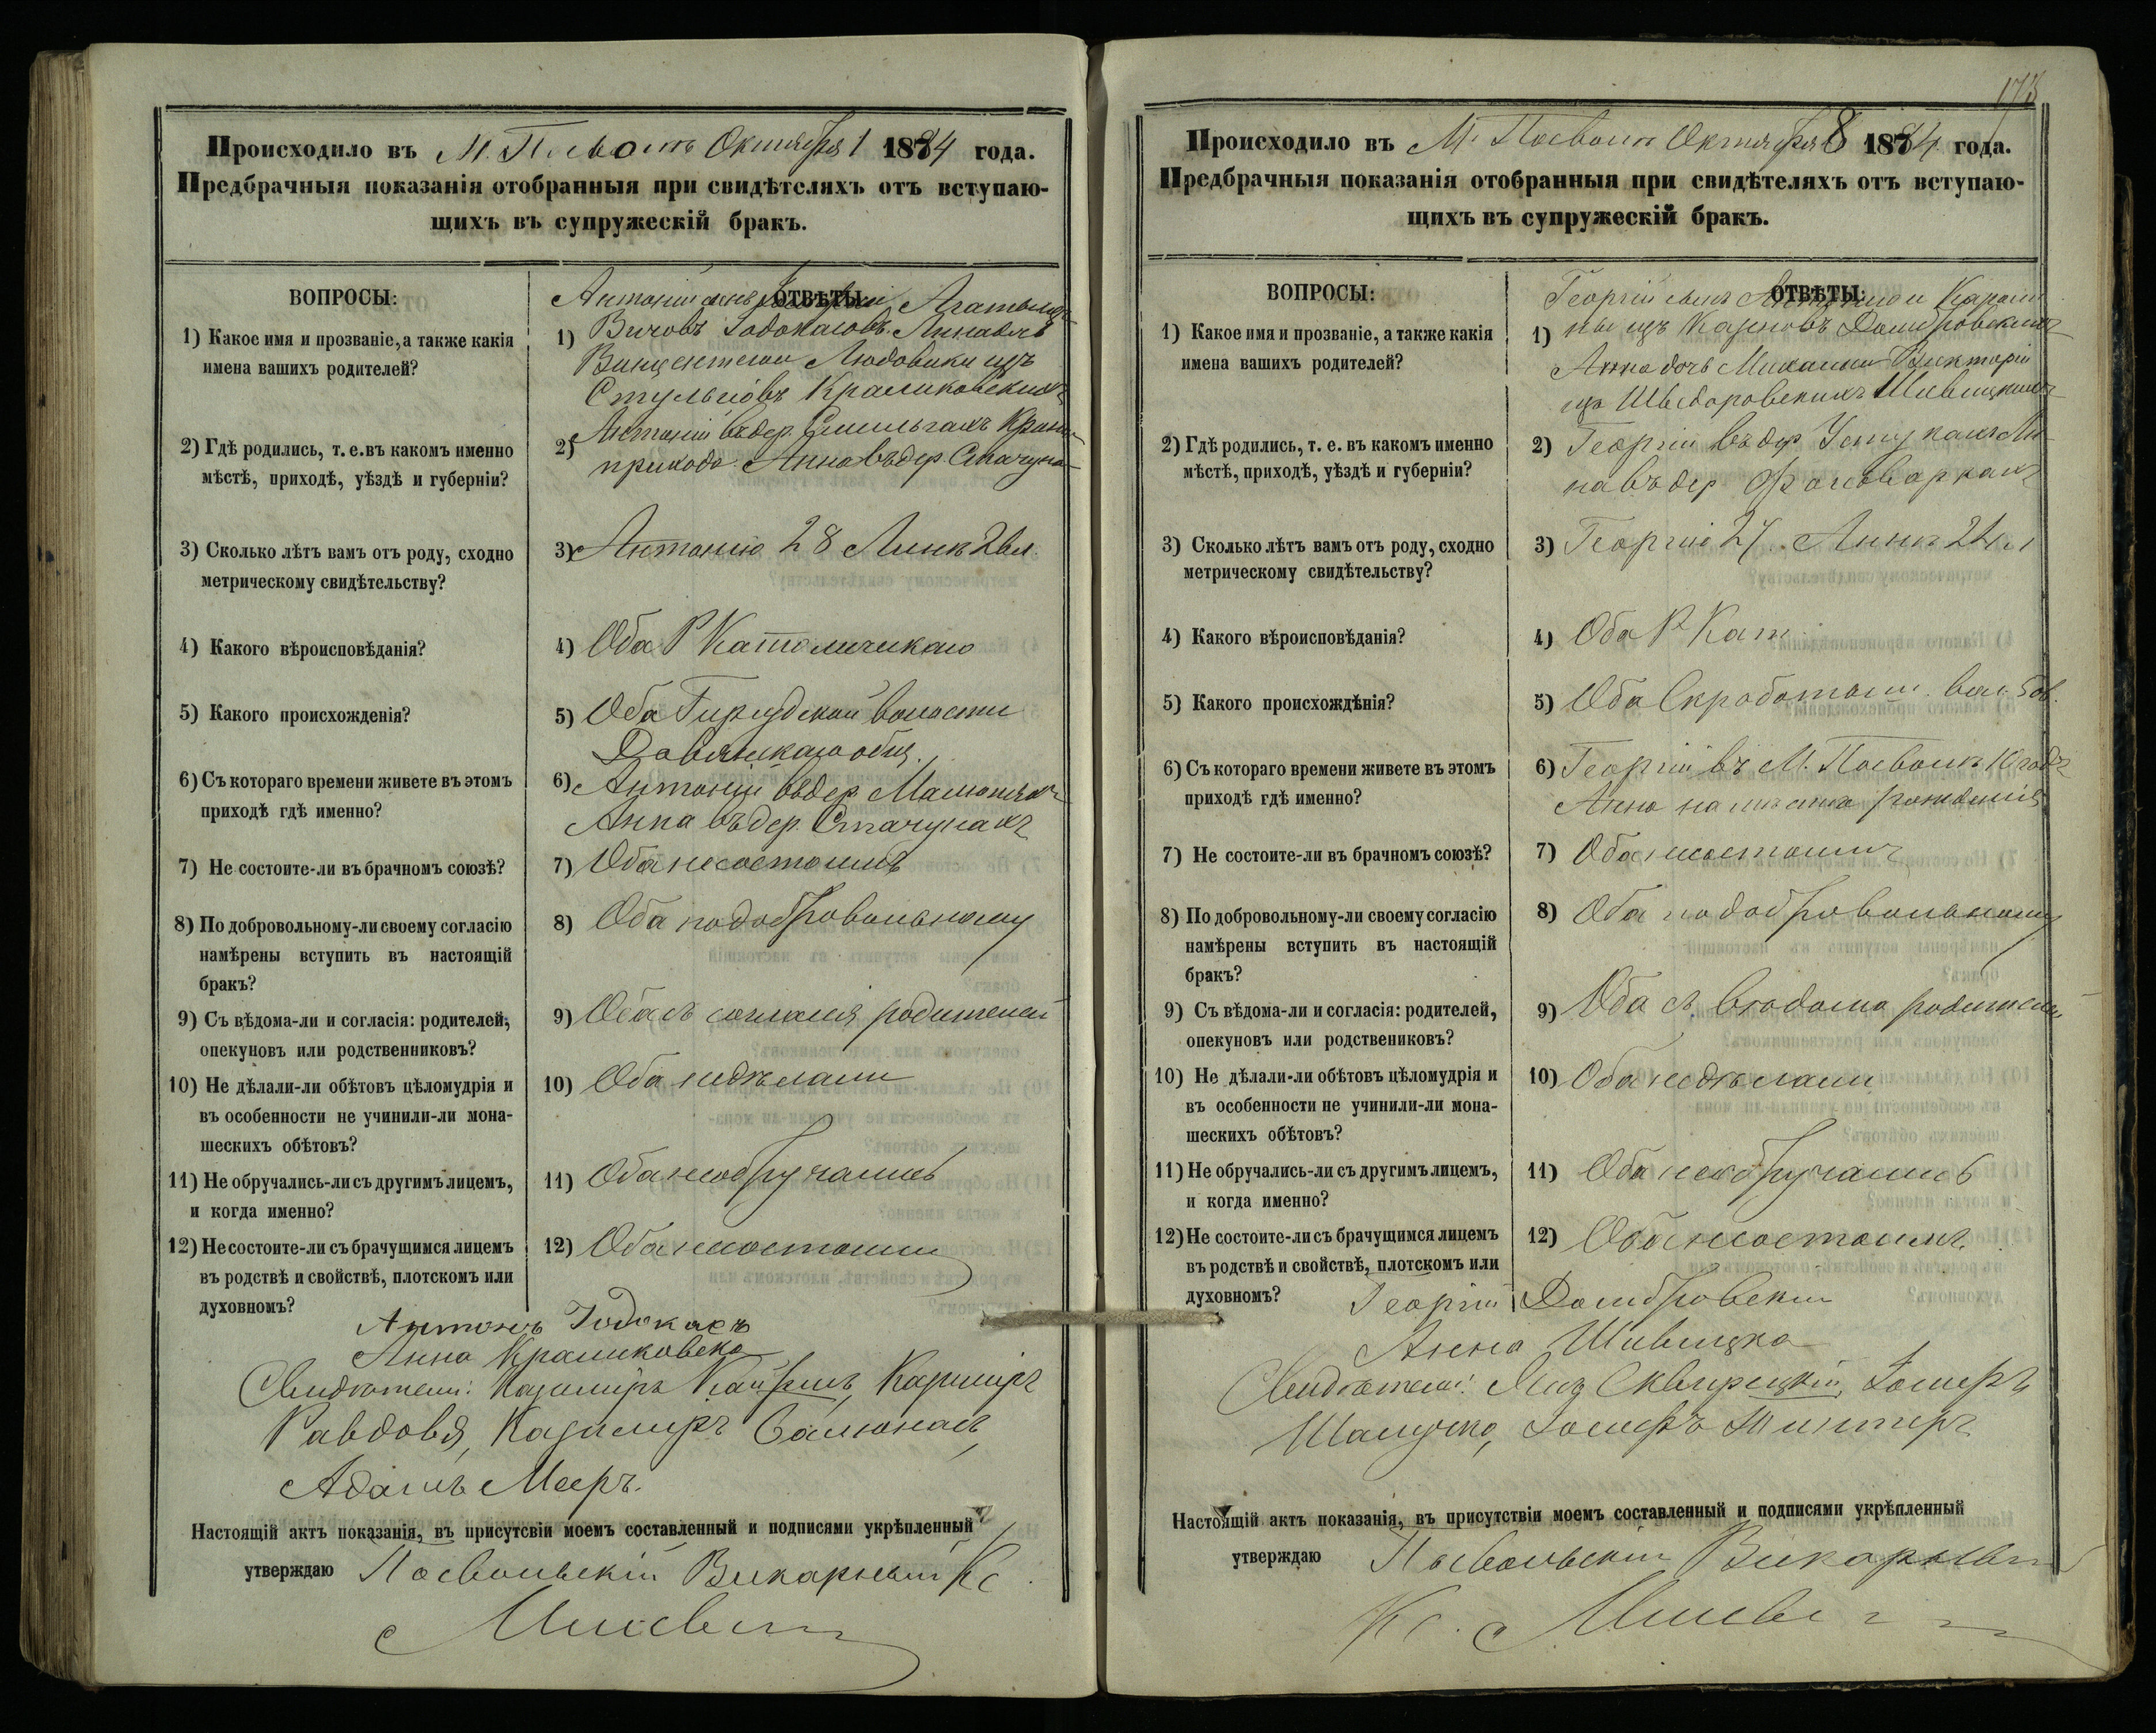 Происходило въ М. Посволѣ Октября 1 1884 года.
Предбрачныя показанія отобранныя при свидѣтеляхъ отъ вступаю-
щихъ въ супружескій бракъ.
ВОПРОСЫ:
ОТВѢТЫ:
1) Какое имя и прозваніе, а также какія
имена вашихъ родителей?
1) Антоній сынъ
Винцентія и Людовики изъ
Крамиковскихъ
2) Гдѣ родились, т. е. въ какомъ именно
мѣстѣ, приходѣ, уѣздѣ и губерніи?
2) Антоній въ дер.
прихода Анна въ дер.
3) Сколько лѣтъ вамъ отъ роду, сходно
метрическому свидѣтельству?
3) Антонію 28 Аннѣ
4) Какого вѣроисповѣданія?
4) Оба Р Католическаго
5) Какого происхожденія?
5) Оба волости
общ.
6) Съ котораго времени живете въ этомъ
приходѣ гдѣ именно?
6) Антоній въ дер.
Анна въ дер. Стачунахъ
7) Не состоите-ли въ брачномъ союзѣ?
7) Оба несостоимъ
8) По добровольному-ли своему согласію
намѣрены вступить въ настоящій
бракъ?
8) Оба подобровольному
9) Съ вѣдома-ли и согласія: родителей,
опекуновъ или родственниковъ?
9) Оба съ согласія родителей
10) Не дѣлали-ли обѣтовъ цѣломудрія и
въ особенности не учинили-ли мона-
шескихъ обѣтовъ?
10) Оба недѣлали
11) Не обручались-ли съ другимъ лицемъ,
и когда именно?
11) Оба необручались
12) Не состоите-ли съ брачущимся лицемъ
въ родствѣ и свойствѣ, плотскомъ или
духовномъ?
12) Оба несостоимъ
Антонъ
Анна Крамиковска
Свидѣтели: Казимиръ Казимиръ
Казимиръ
Адамъ
Настоящій актъ показанія, въ присутсвіи моемъ составленный и подписями укрѣпленный
утверждаю Посвольскій Викарный Кс
173
Происходило въ М. Посволѣ Октября 8 1884 года.
Предбрачныя показанія отобранныя при свидѣтеляхъ отъ вступаю-
щихъ въ супружескій бракъ.
ВОПРОСЫ:
ОТВѢТЫ:
1) Какое имя и прозваніе, а также какія
имена вашихъ родителей?
1) Георгій сынъ и Кароли
ны изъ Домбровскихъ
Анна дочь Викторіи
изъ
2) Гдѣ родились, т. е. въ какомъ именно
мѣстѣ, приходѣ, уѣздѣ и губерніи?
2) Георгій въ дер. Ан-
на въ дер
3) Сколько лѣтъ вамъ отъ роду, сходно
метрическому свидѣтельству?
3) Георгій 27 Аннѣ
4) Какого вѣроисповѣданія?
4) Оба Р Кат
5) Какого происхождѣнія?
5) Оба
6) Съ котораго времени живете въ этомъ
приходѣ гдѣ именно?
6) Георгій въ М. Посволѣ
Анна на рожденія
7) Не состоите-ли въ брачномъ союзѣ?
7) Оба несостоимъ
8) По добровольному-ли своему согласію
намѣрены вступить въ настоящій
бракъ?
8) Оба подобровольному
9) Съ вѣдома-ли и согласія: родителей,
опекуновъ или родствениковъ?
9) Оба съ родителей
10) Не дѣлали-ли обѣтовъ цѣломудрія и
въ особенности не учинили-ли мона-
шескихъ обѣтовъ?
10) Оба недѣлали
11) Не обручались-ли съ другимъ лицемъ,
и когда именно?
11) Оба необручались
12) Не состоите-ли съ брачущимся лицемъ
въ родствѣ и свойствѣ, плотскомъ или
духовномъ?
12) Оба несостоимъ
Георгій Домбровскій
Анна
Свидѣтели:
Настоящій актъ показанія, въ присутствіи моемъ составленный и подписями укрѣпленный
утверждаю Посвольскій Викарный
Кс.